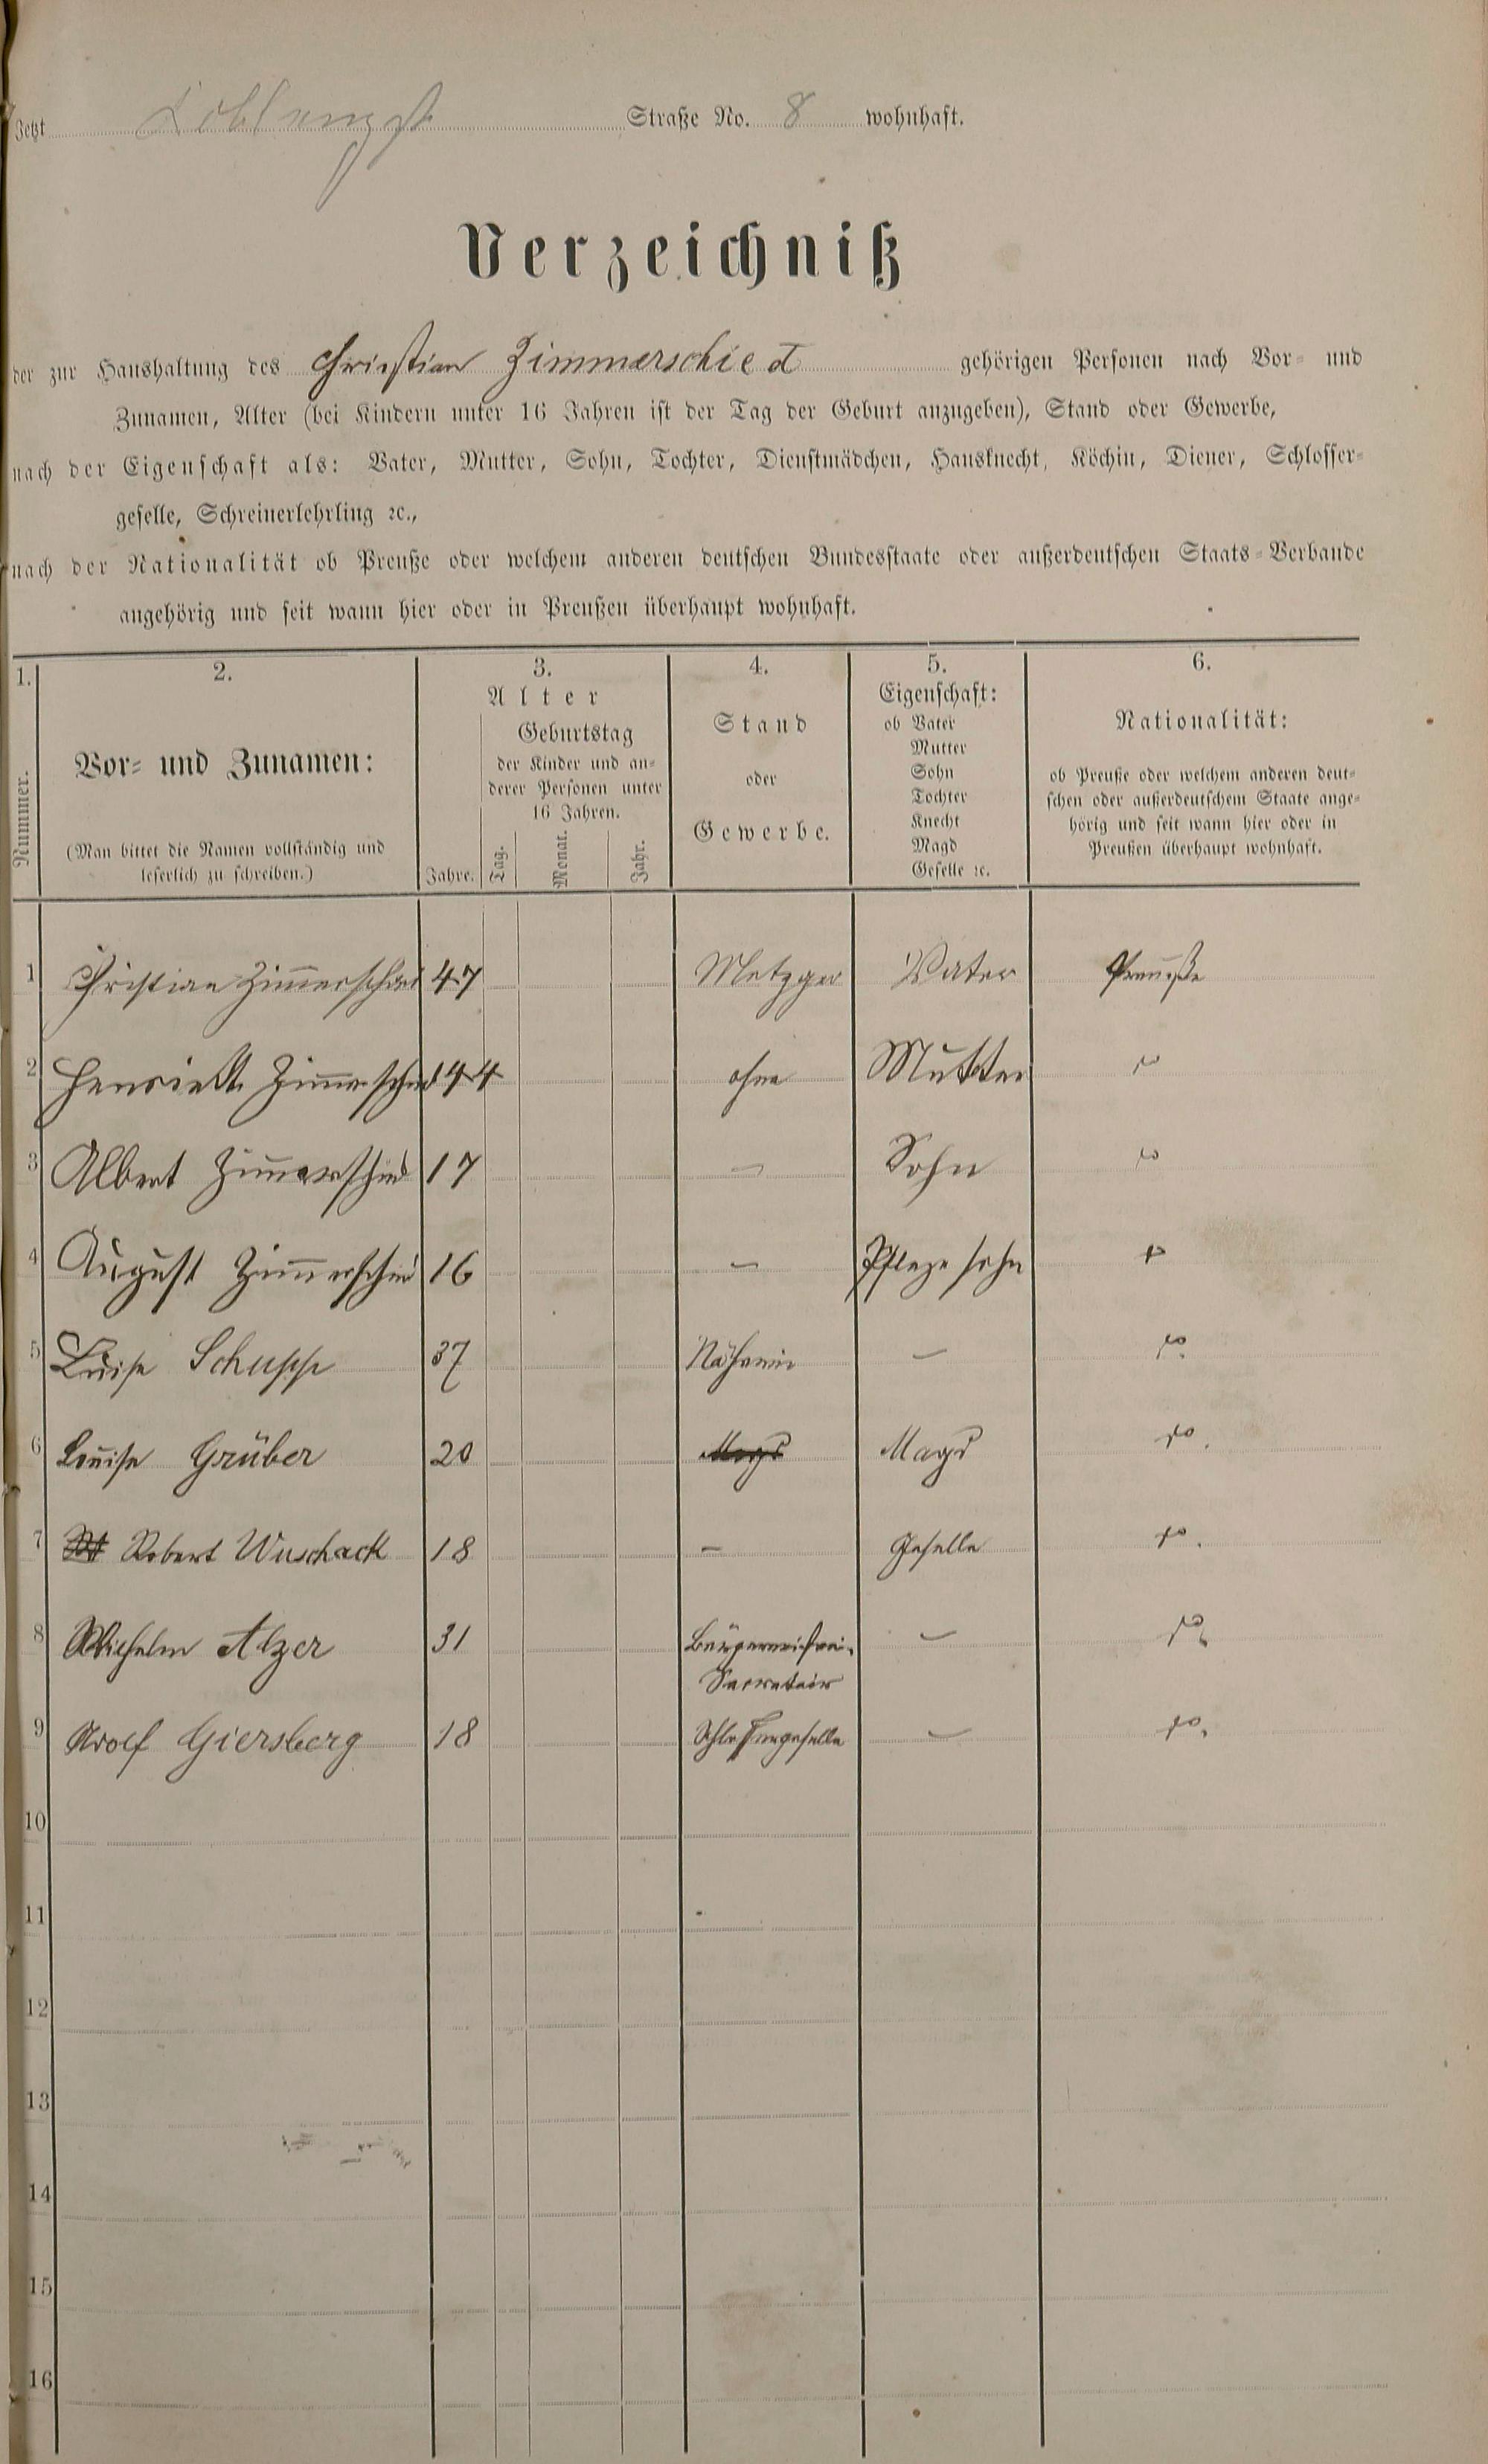 Jetzt Coblenzst Straße No. 8 wohnhaft.
Verzeichniß
der zur Haushaltung des Christian Zimmerschied gehörigen Personen nach Vor- und
Zunamen, Alter (bei Kindern unter 16 Jahren ist der Tag der Geburt anzugeben), Stand oder Gewerbe,
nach der Eigenschaft als: Vater, Mutter, Sohn, Tochter, Dienstmädchen, Hausknecht, Köchin, Diener, Schlosser-
geselle, Schreinerlehrling ꝛc.,
nach der Nationalität ob Preuße oder welchem anderen deutschen Bundesstaate oder außerdeutschen Staats-Verbande
angehörig und seit wann hier oder in Preußen überhaupt wohnhaft.
1. 2. 3. 4. 5. 6.
Nummer.
Vor- und Zunamen:
(Man bittet die Namen vollständig und
leserlich zu schreiben.)
Alter
Geburtstag
der Kinder und an-
derer Personen unter
16 Jahren.
Jahre. Tag. Monat. Jahr.
Stand
oder
Gewerbe.
Eigenschaft:
ob Vater
Mutter
Sohn
Tochter
Knecht
Magd
Geselle ꝛc.
Nationalität:
ob Preuße oder welchem anderen deut-
schen oder außerdeutschem Staate ange-
hörig und seit wann hier oder in
Preußen überhaupt wohnhaft.
1 Christian Zimmerschied 47 Metzger Vater Preuße
2 Henriette Zimmerschied 44 ohne Mutter do
3 Albert Zimmerschied 17 — Sohn do
4 August Zimmerschied 16 — Pflegesohn do
5 Luise Schupp 37 Näherin — do.
6 Louise Grüber 20 Magd Magd do.
7 Robert Wuschack 18 — Geselle do.
8 Wilhelm Alzer 31 Bürgermeisterei- — do.
Secretair
9 Adolf Giersberg 18 Schlossergeselle — do.
10
11
12
13
14
15
16